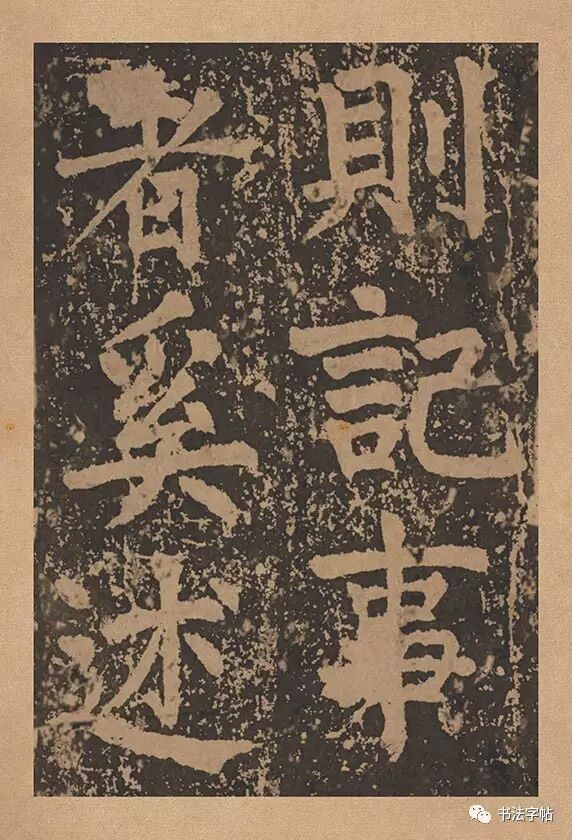 則記事
者奚述
书法字帖